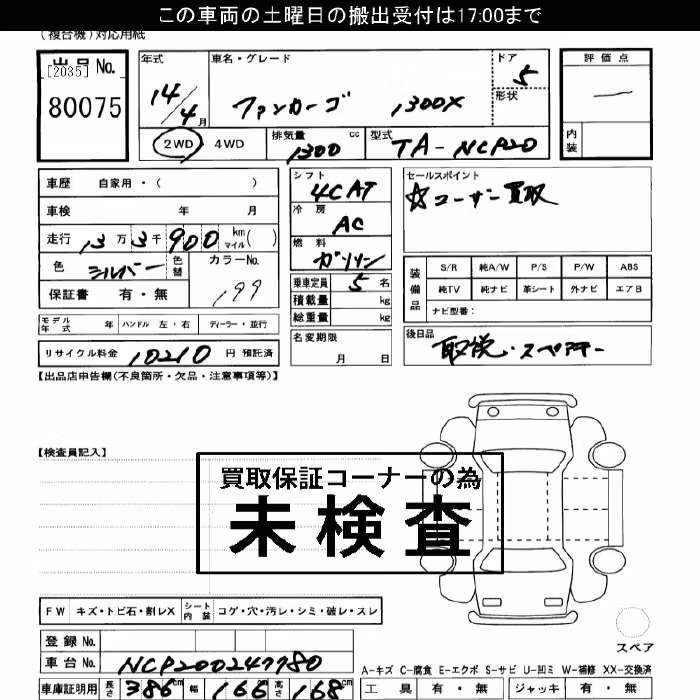 この車両の土曜日の搬出受付は17:00まで
(複合機)対応用紙
出品 No. [2035] 80075
年式 14/4月
車名・グレード ファンカーゴ 1300X
ドア 5
形状
評価点 ―
内装
2WD 4WD
排気量 1300 cc
型式 TA-NCP20
車歴 自家用・( )
車検 年 月
走行 13万3千900 km マイル( )
色 シルバー 色替
カラーNo. 199
保証書 有・無
シフト 4CAT
冷房 AC
燃料 ガソリン
乗車定員 5 名
積載量 kg
総重量 kg
セールスポイント
☆コーナー買取
装備品
S/R 純A/W P/S P/W ABS
純TV 純ナビ 革シート 外ナビ エアB
ナビ型番:
モデル年式 年 ハンドル 左・右 ディーラー・並行
リサイクル料金 10210 円 預託済
名変期限 月 日
後日品 取説・スペアキー
【出品店申告欄(不良箇所・欠品・注意事項等)】
【検査員記入】
買取保証コーナーの為
未検査
FW キズ・トビ石・割レX シート内装 コゲ・穴・汚レ・シミ・破レ・スレ
スペア
登録 No.
車台 No. NCP200247780
A-キズ C-腐食 E-エクボ S-サビ U-凹ミ W-補修 XX-交換済
車庫証明用 長さ 386cm 幅 166cm 高さ 168cm
工具 有・無 ジャッキ 有・無